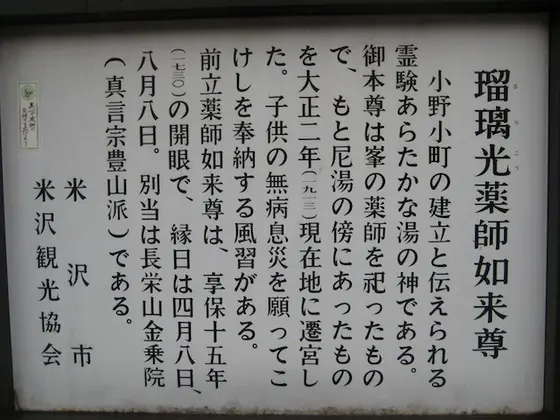 瑠璃光薬師如来尊
るりこう
小野小町の建立と伝えられる
霊験あらたかな湯の神である。
御本尊は峯の薬師を祀ったもの
で、もと尼湯の傍にあったもの
を大正二年(一九一三)現在地に遷宮し
た。子供の無病息災を願ってこ
けしを奉納する風習がある。
前立薬師如来尊は、享保十五年
(一七三〇)の開眼で、縁日は四月八日、
八月八日。別当は長栄山金乗院
(真言宗豊山派)である。
米沢市
米沢観光協会